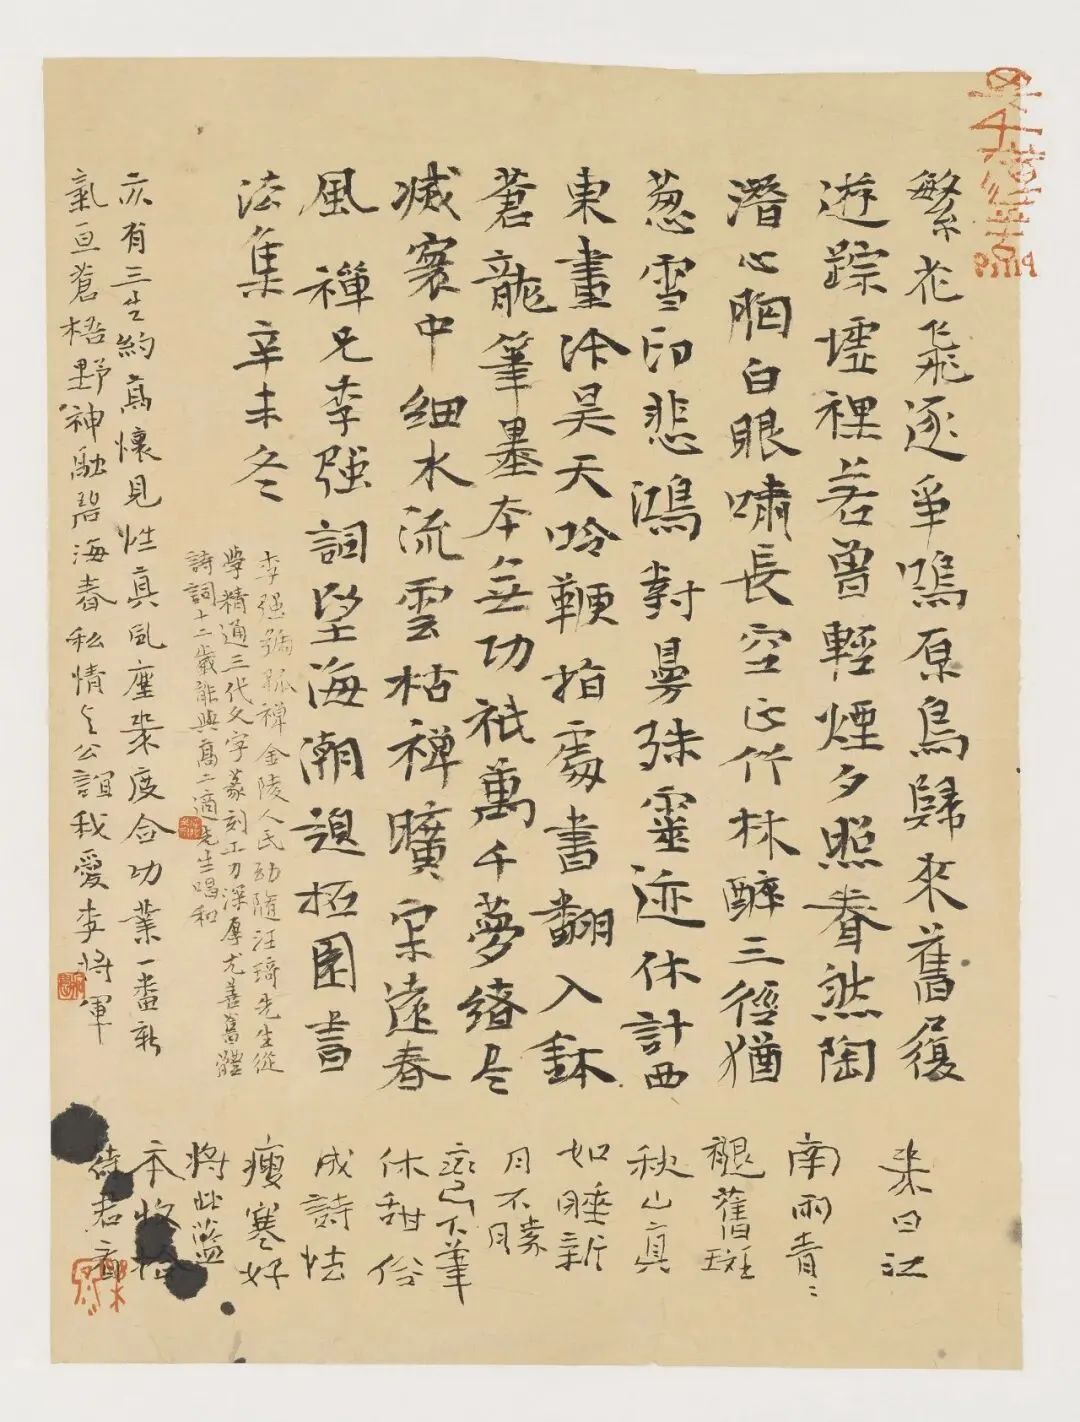 繁花飛逐爭鳴原鳥歸來舊復
遊踪壚裡若曾輕煙夕照聳然陶
潛心胸白眼嘯長空正竹林醉三徑猶
葱雪印悲鴻對鼻殊靈迹休計西
東畫泠昊天吟鞭指處書翻入鉢
蒼龍筆墨本無功祇萬千夢緒尽
减寰中細水流雲枯禅曠杲遠春
風禪兄李强詞望海潮題柘園書
法集辛未冬
李强號孤禅金陵人氏幼隨汪琦先生從
學精通三代文字篆刻工力深厚尤善舊體
詩詞十二歲能與高二適先生唱和
亦有三生約高懷見性真風塵桼度合功業一畨新
氣亘蒼梧野神融碧海春私情与公誼我愛李將軍
桼日江
南雨青〻
褪舊斑
秋山真
如睡新
月不勝
下筆
休甜俗
成詩怯
瘦寒好
將此藍
本收拾
待君